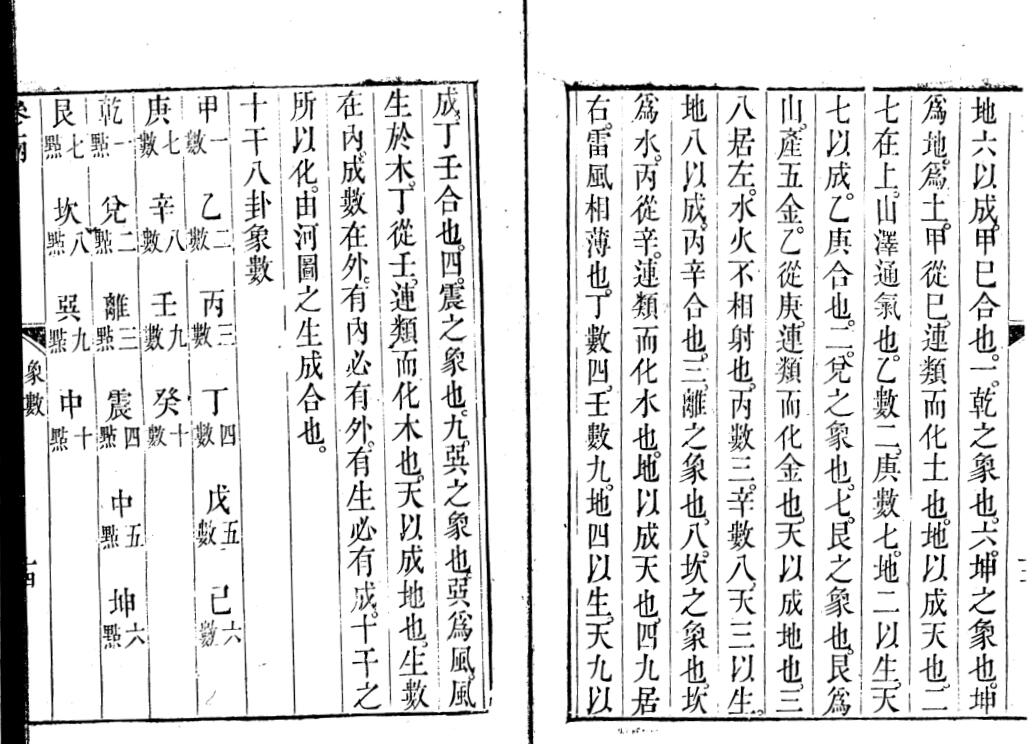 地六以成。甲巳合也。一。乾之象也。六。坤之象也。坤
爲地。爲土。甲從巳。連類而化土也。地以成天也。二
七在上。山澤通氣也。乙數二。庚數七。地二以生。天
七以成。乙庚合也。二。兌之象也。七。艮之象也。艮爲
山。產五金。乙從庚。連類而化金也。天以成地也。三
八居左。水火不相射也。丙數三。辛數八。天三以生。
地八以成。丙辛合也。三。離之象也。八。坎之象也。坎
爲水。丙從辛。連類而化水也。地以成天也。四九居
右。雷風相薄也。丁數四。壬數九。地四以生。天九以
成。丁壬合也。四。震之象也。九。巽之象也。巽爲風。風
生於木。丁從壬。連類而化木也。天以成地也。生數
在內。成數在外。有內必有外。有生必有成。十干之
所以化。由河圖之生成合也。
十干八卦象數
甲一數 乙二數 丙三數 丁四數 戊五數 己六數
庚七數 辛八數 壬九數 癸十數
乾一點 兌二點 離三點 震四點 中五點 坤六點
艮七點 坎八點 巽九點 中十點
象數